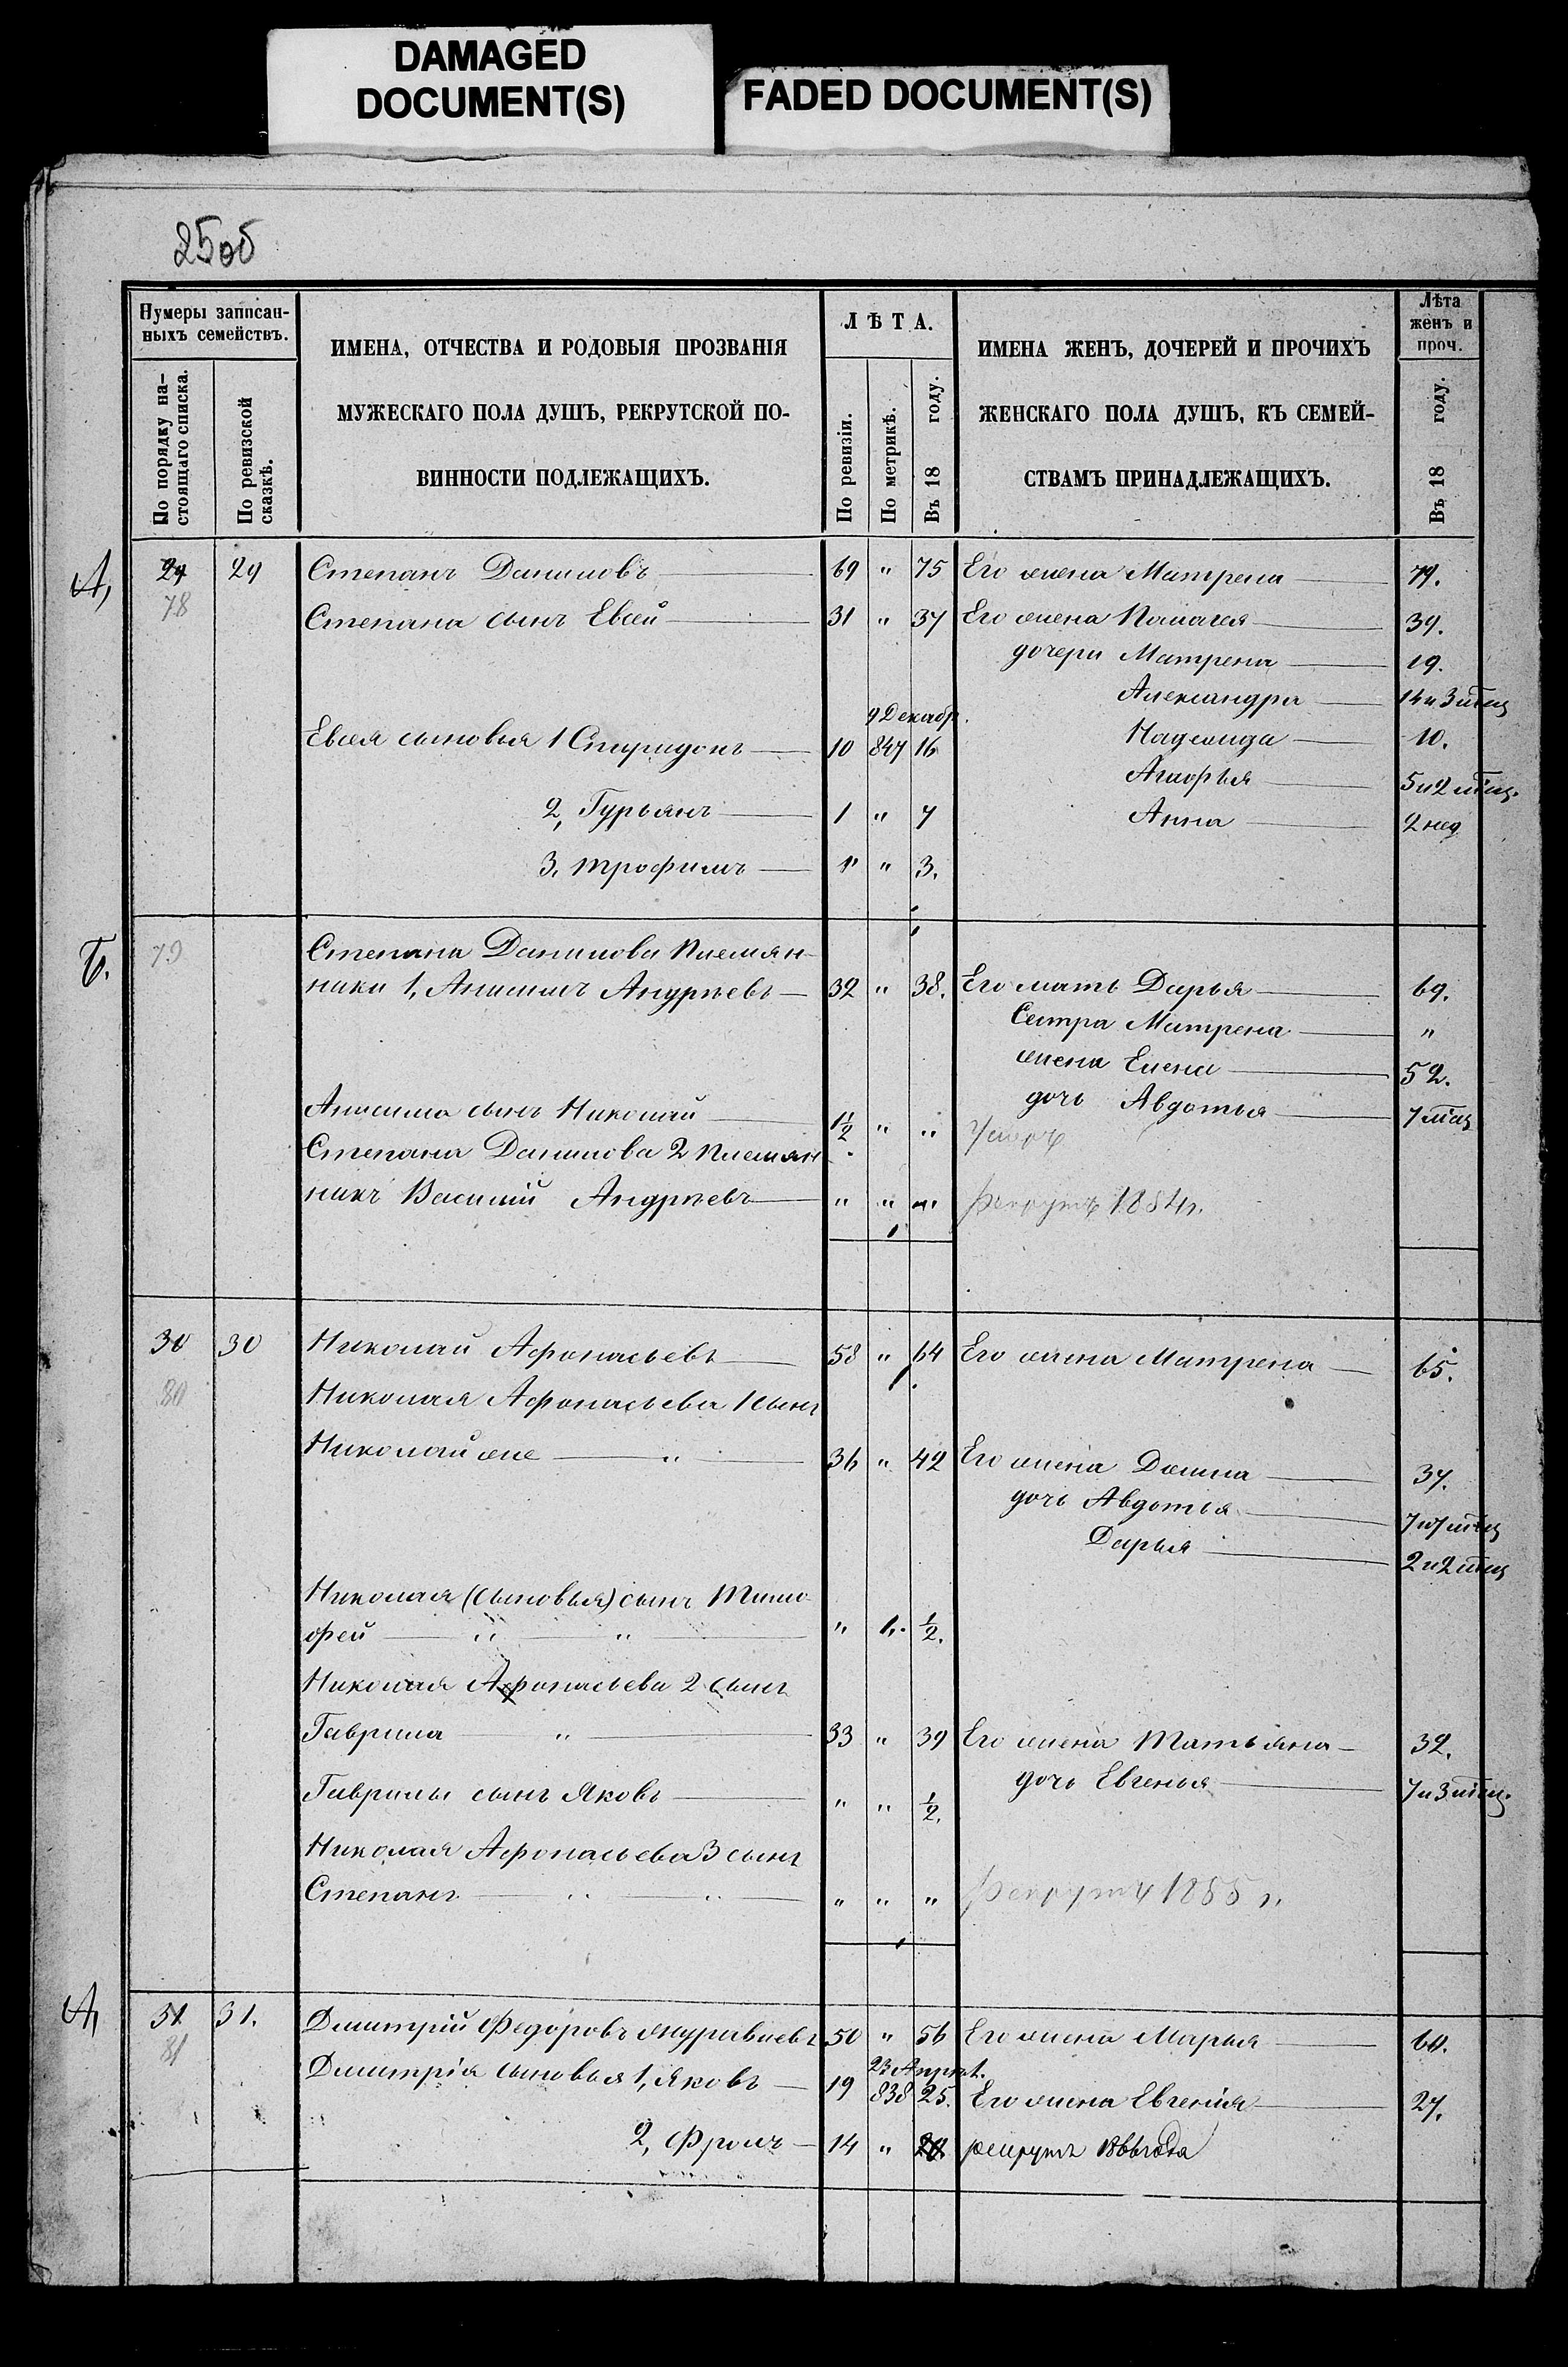 DAMAGED
DOCUMENT(S)
FADED DOCUMENT(S)
25об
Нумеры записан-
ныхъ семействъ.
По порядку на-
стоящаго списка.
По ревизской
сказкѣ.
ИМЕНА, ОТЧЕСТВА И РОДОВЫЯ ПРОЗВАНІЯ
МУЖЕСКАГО ПОЛА ДУШЪ, РЕКРУТСКОЙ ПО-
ВИННОСТИ ПОДЛЕЖАЩИХЪ.
ЛѢТА.
По ревизіи.
По метрикѣ.
Въ 18 году.
ИМЕНА ЖЕНЪ, ДОЧЕРЕЙ И ПРОЧИХЪ
ЖЕНСКАГО ПОЛА ДУШЪ, КЪ СЕМЕЙ-
СТВАМЪ ПРИНАДЛЕЖАЩИХЪ.
Лѣта
женъ и
проч.
Въ 18 году.
А, 29 29 Степанъ Даниловъ 69 " 75 Его жена Матрена 79.
78
Степана сынъ Евсей 31 " 37 Его жена Палагея 39.
дочери Матрена 19.
Александра 14 и 3 мѣсц
9 Декабр.
Евсея сыновья 1 Спиридонъ 10 847 16 Надежида 10.
Агнофья 5 и 2 мѣсц.
2, Гурьянъ 1 " 7 Анна 2 нед
3. Трофимъ 1" " 3.
Б. 79 Степана Данилова племян-
ники 1, Анисимъ Андрѣевъ 32 " 38. Его мать Дарья 69.
Сестра Матрена "
жена Елена 52.
дочь Авдотья 7 мѣсц
Анисима сынъ Николай 1½ " " Умеръ
Степана Данилова 2 племян-
никъ Василий Андрѣевъ " " " рекрутъ 1854 г.
30 30 Николай Афонасьевъ 58 " 64 Его жена Матрена 65.
80
Николая Афонасьева 1 сынъ
Николай же " 36 " 42 Его жена Домна 37.
дочь Авдотья 7 и 7 мѣсц
Дарья 2 и 2 мѣсц
Николая (сыновья) сынъ Тимо-
фей " " " 1. ½.
Николая Афонасьева 2 сынъ
Гаврила " 33 " 39 Его жена Татьяна 32.
дочь Евгенья 7 и 3 мѣсц.
Гаврилы сынъ Яковъ " " ½.
Николая Афонасьева 3 сынъ
Степанъ " " " " " рекрутъ 1855 г.
А, 31 31. Дмитрій Федоровъ Журавлевъ 50 " 56 Его жена Марья 60.
81
23 Апрѣл.
Дмитрія сыновья 1, Яковъ 19 838 25. Его жена Евгенія 27.
2, Фролъ 14 " 20 рекрутъ 1866 года